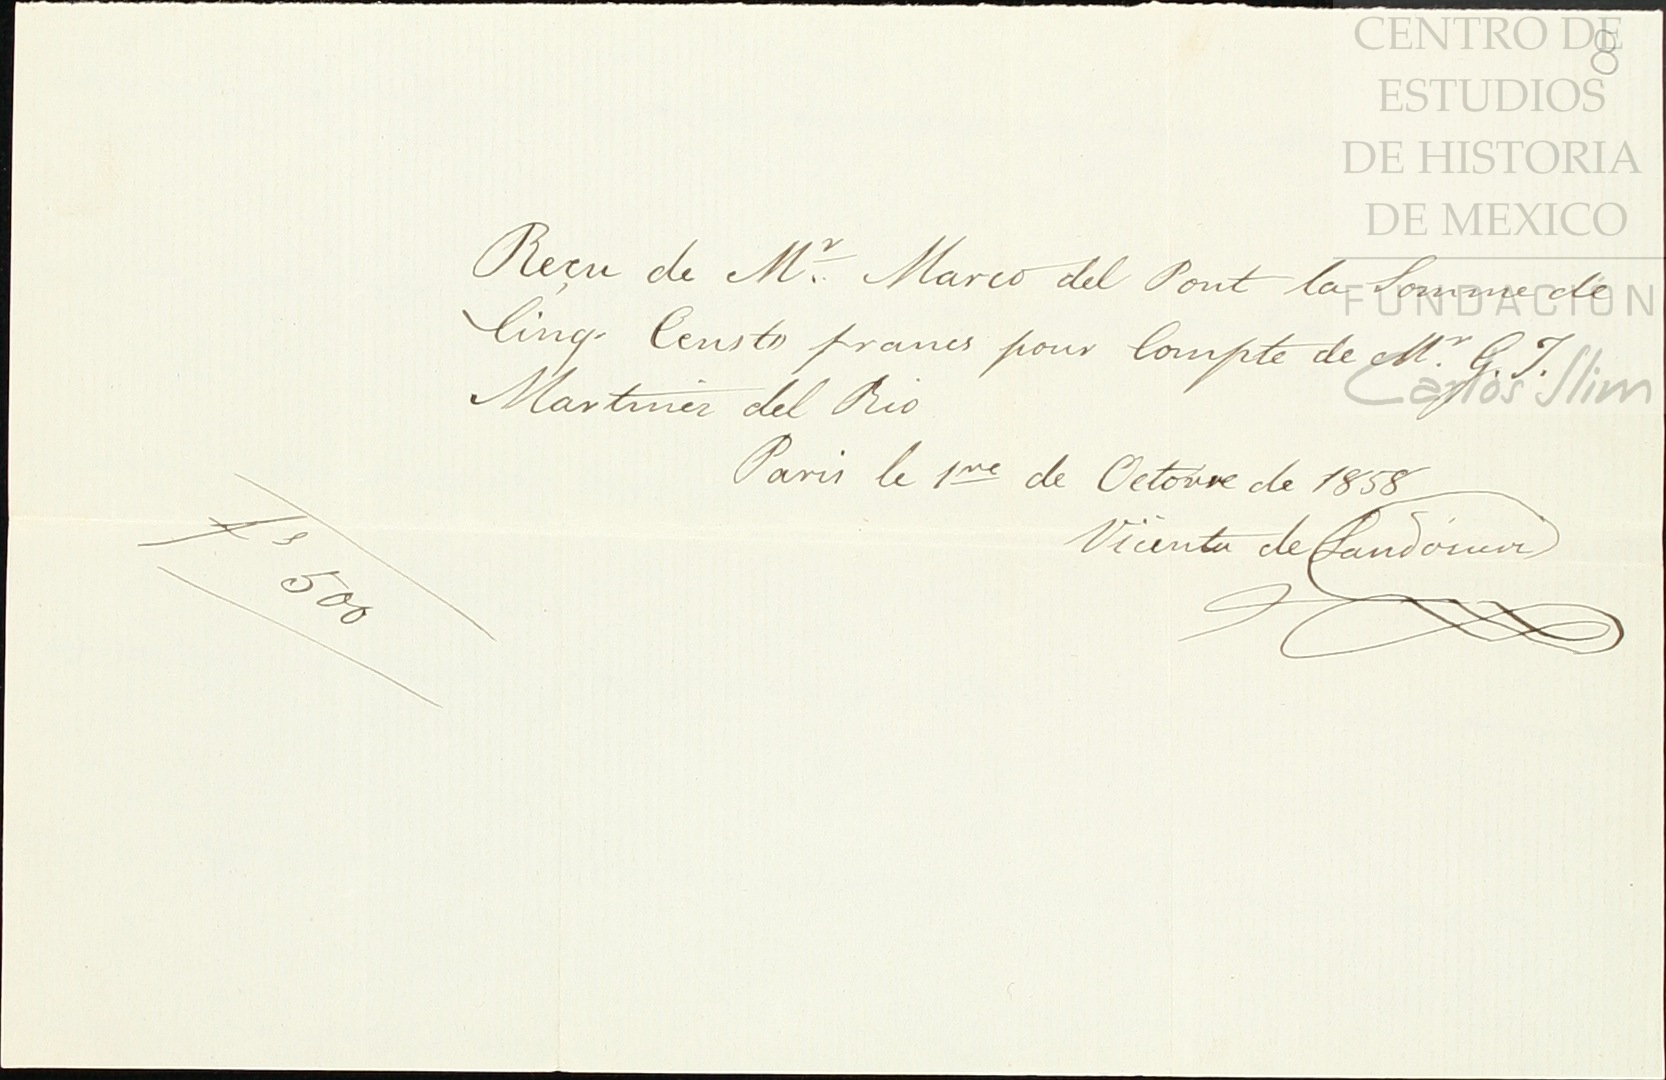 CENTRO DE
ESTUDIOS
DE HISTORIA
DE MEXICO
FUNDACION
Carlos Slim
8
Reçu de Mr. Marco del Pont la Somme de
Cinq Censts francs pour Compte de Mr. G. J.
Martinez del Rio
Paris le 1re de Octovre de 1858
Vicenta de
fs 500